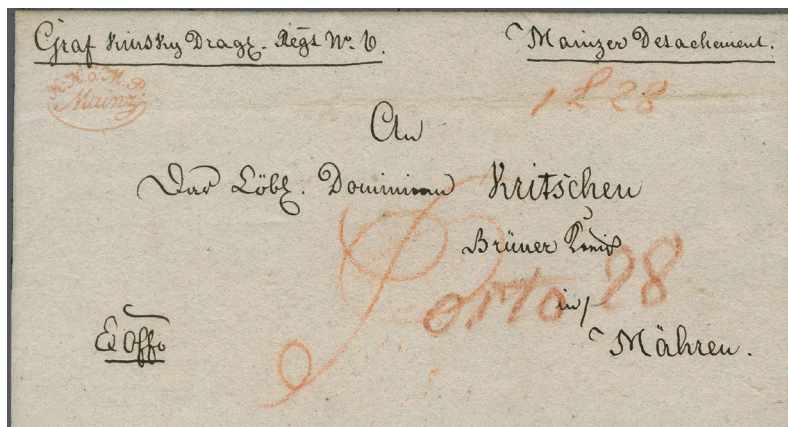 Graf Kinsky Dragr. Regt No. 6.
Mainzer Detachement.
K.K.O.M.P.
Mainz
1828
An
Das Löbl. Dominium Kritschen
Brüner Kreis
Porto 28
in
Mähren.
Ex Offo